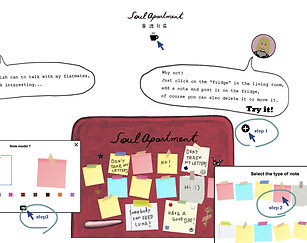 Soul Apartment
ish can to talk with my flatmates,
k interesting...
Why not?
Just click on the "Fridge" in the living room,
add a note and post it on the fridge,
of course you can also delete it or move it.
Try it!
step 1
Soul Apartment
Note model 7
DON'T TAKE MY LETTERS
NO!
DON'T TRASH MY LETTERS
Hi :)
Somebody CAN FEED LUNA?
HAVE A GOOD DAY!
Select the type of note
step 2
step3